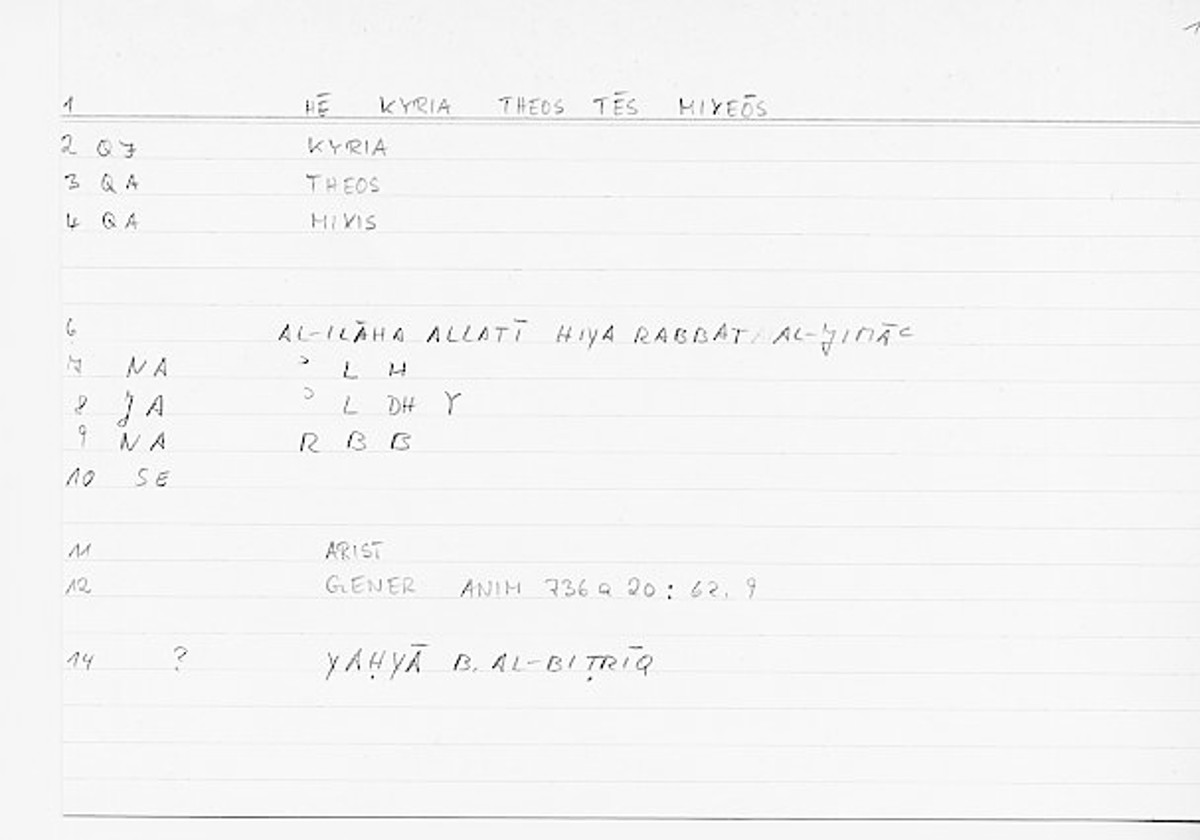 1
1 HĒ KYRIA THEOS TĒS MIXEŌS
2 QJ KYRIA
3 QA THEOS
4 QA MIXIS
6 AL-ILĀHA ALLATĪ HIYA RABBAT AL-JIMĀC
7 NA ɔ L H
8 JA ɔ L DH Y
9 NA R B B
10 SE
11 ARIST
12 GENER ANIM 736 a 20 : 62. 9
14 ? YAḤYĀ B. AL-BIṬRĪQ